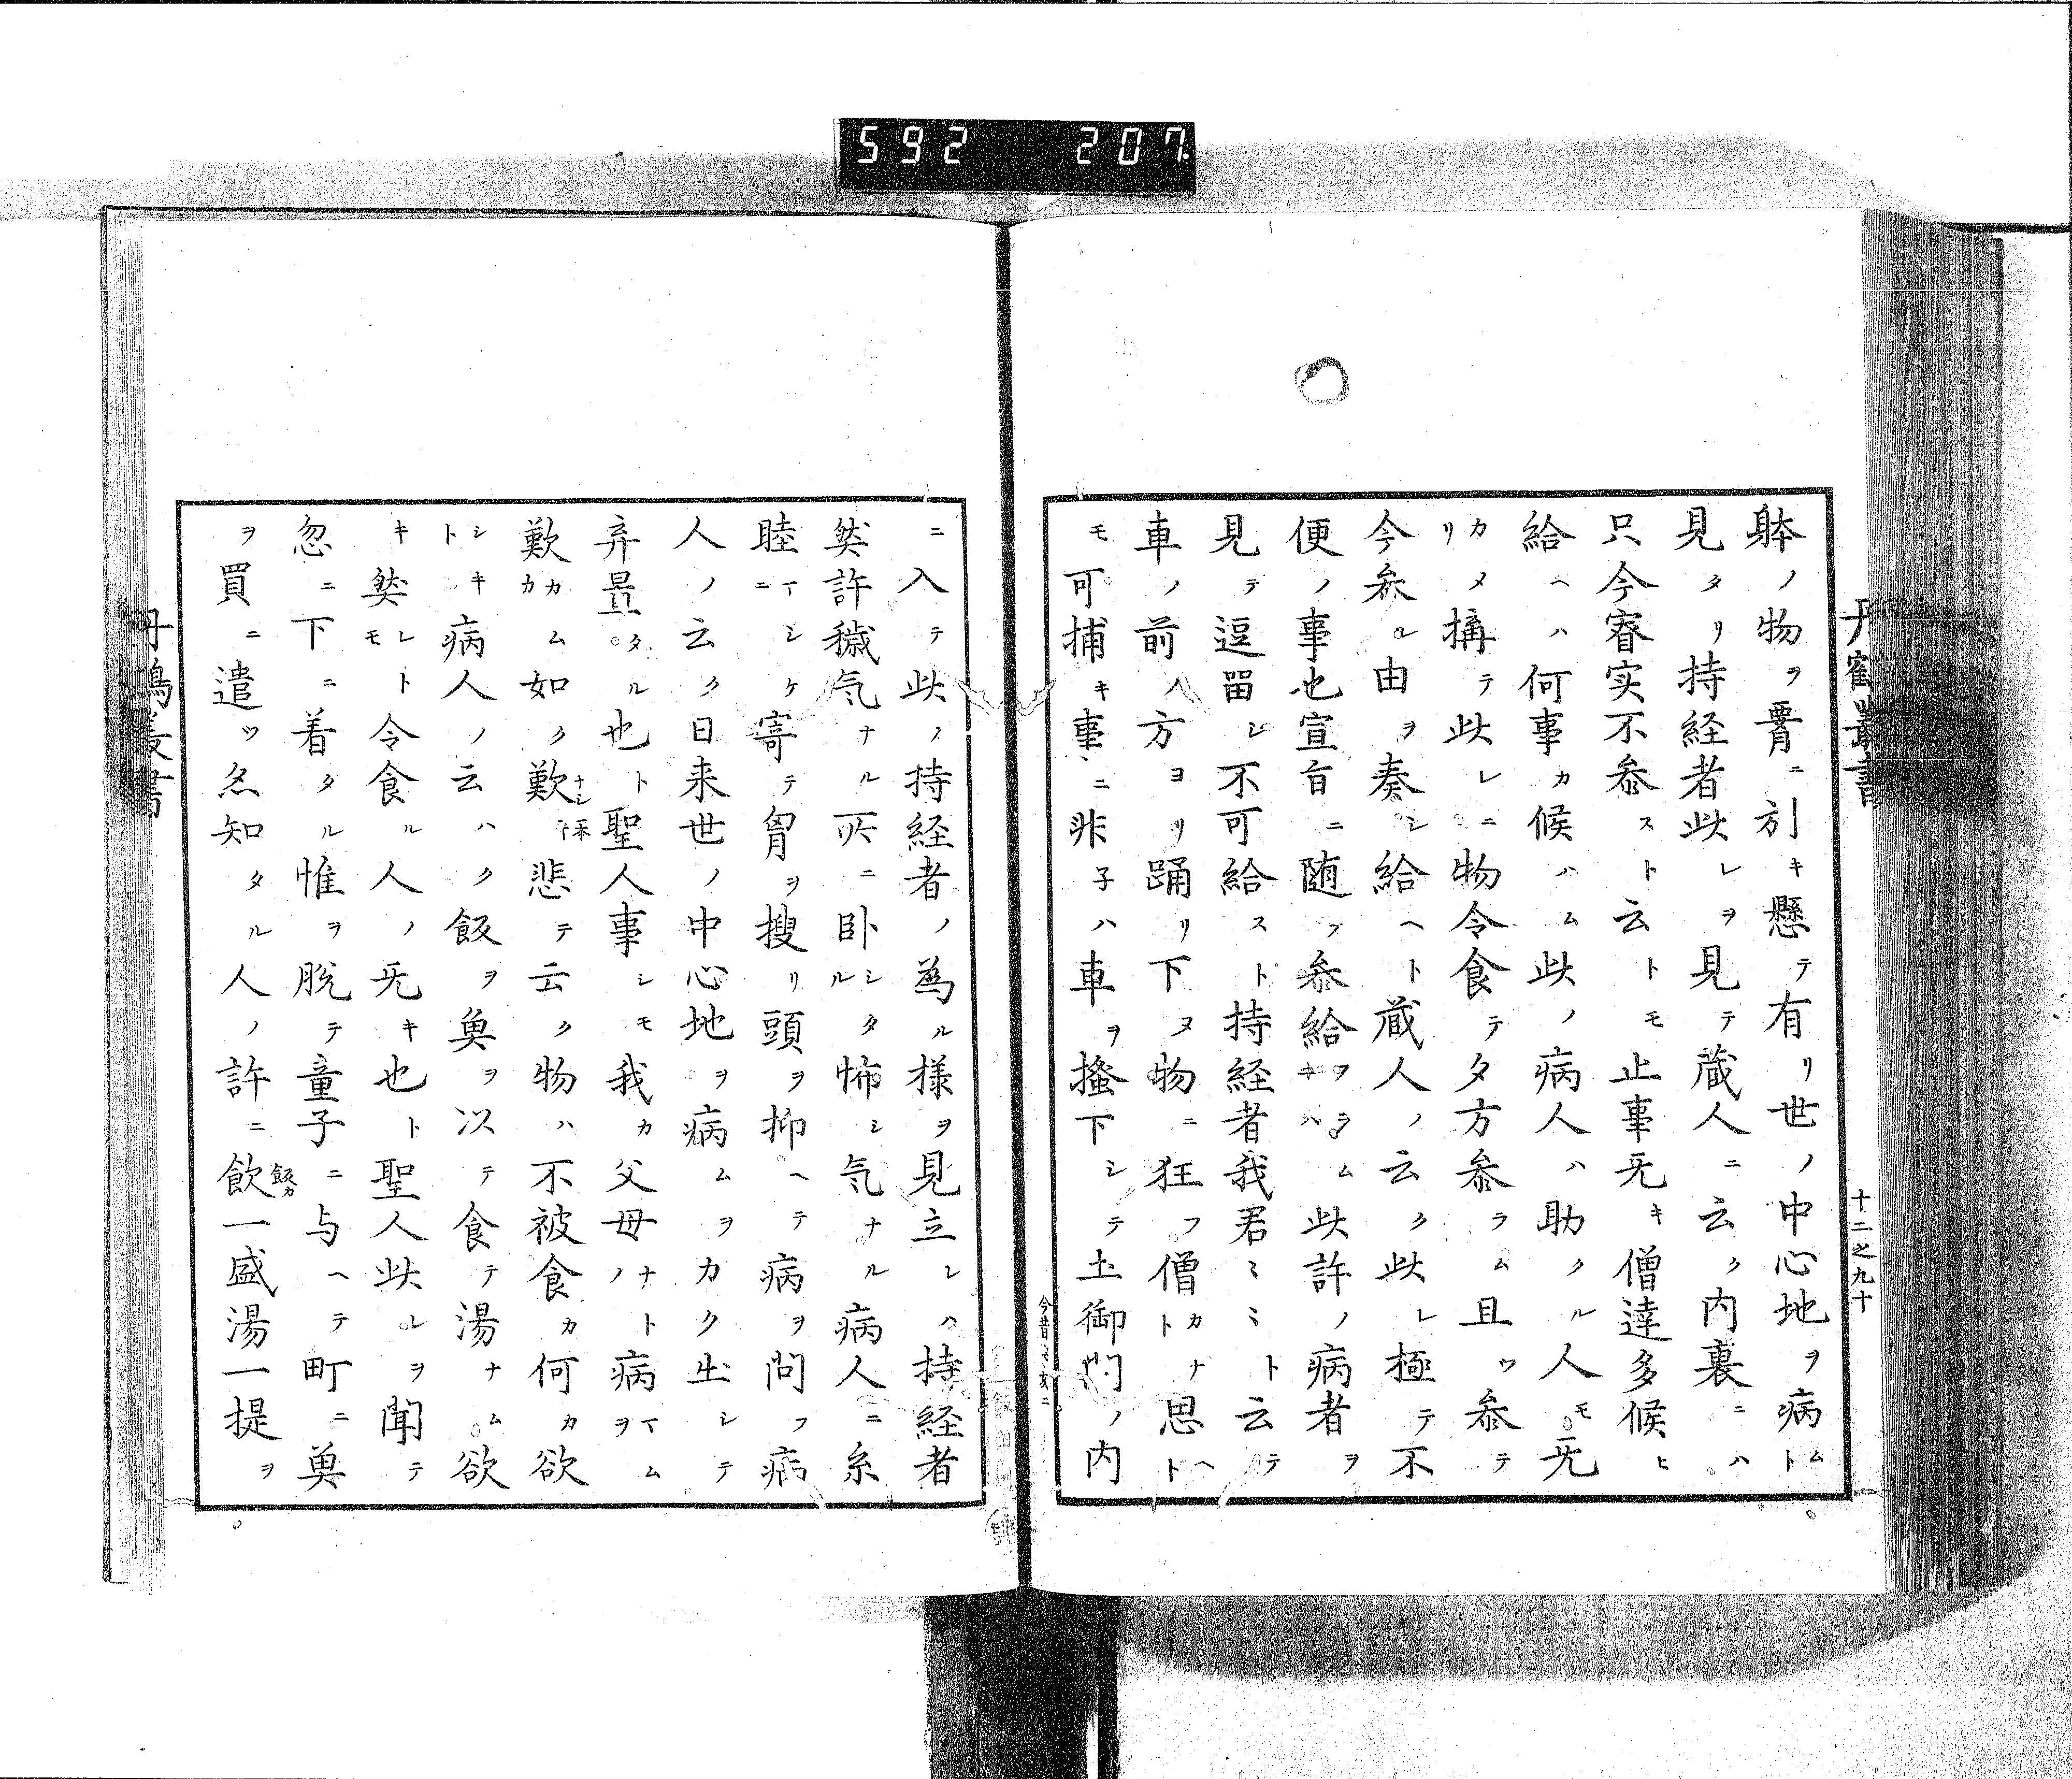 592 207
丹鶴叢書
十二之九十
躰ノ物ヲ覀ニ引キ懸テ有リ世ノ中心地ヲ病ムト
見タリ持経者此レヲ見テ蔵人ニ云ク内裏ニハ
只今不参ストテ云トモ止事旡キ僧達多候ヒ
給ヘハ何事カ候ハム此ノ病人ハ助クル人モ旡
カメリ構テ此レニ物令食テタ方参ラム且ツ参テ
今参ル由ヲ奏シ給ヘト蔵人ノ云ク此レ極テ不
便ノ事也宣旨ニ随フ参給ヲラムキハ此許ノ病者ヲ
見テ逗留シ不可給スト持経者我君ミミト云テ
車ノ前ノ方ヨリ踊リ下ヌ物ニ狂フ僧カナト思ヘト
モ可捕キ事ニ非子ハ車ヲ搔下シテ土御門ノ内
ニ入テ此ノ持経者ノ為ル様ヲ見立レハ持経者
然許穢気ナル所ニ臥シタル怖シ気ナル病人ニ糸
睦シケニ寄テ胷ヲ搜リ頭ヲ抑ヘテ病ヲ問フ病
人ノ云ク日来世ノ中心地ヲ病ムヲカク出シテ
弃置タル也ト聖人事シモ我カ父母ナトノ病ムヲ
歎カムカ如ク歎悲テ云ク物ハ不被食カ何カ欲
シキト病人ノ云ハク飯ヲ魚ヲ以テ食テ湯ナム欲
キ然レトモ令食ル人ノ旡キ也ト聖人此レヲ聞テ
忽ニ下ニ着タル帷ヲ脱テ童子ニ与ヘテ町ニ魚
ヲ買ニ遣ツ亦知タル人ノ許ニ飲一盛湯一提ヲ
飯カ